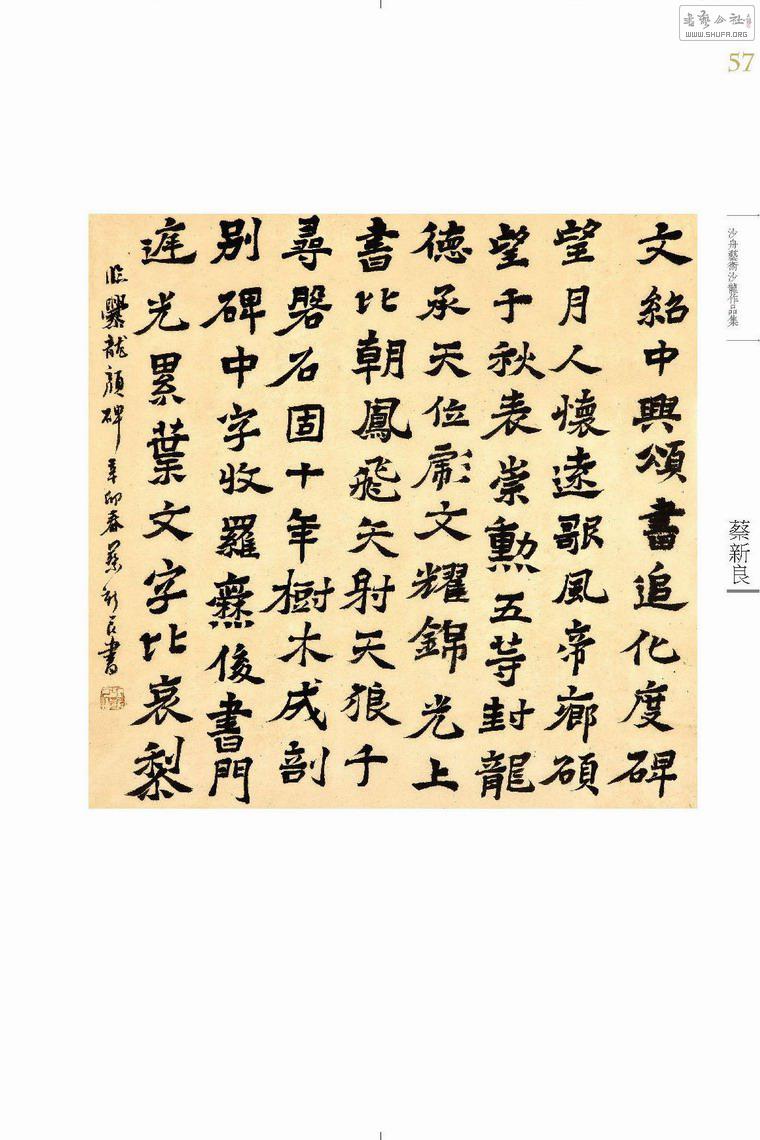 書藝公社
WWW.SHUFA.ORG
57
沙舟藝術沙龍作品集
蔡新良
文紹中興頌書追化度碑
望月人懷遠歌風帝鄉碩
望千秋表崇勳五等封龍
德承天位彪文耀錦光上
書比朝鳳飛矢射天狼千
尋磐石固十年樹木成剖
别碑中字收羅爨後書門
光累葉文字比哀棃
臨爨龍顏碑 辛卯春 蔡新良書